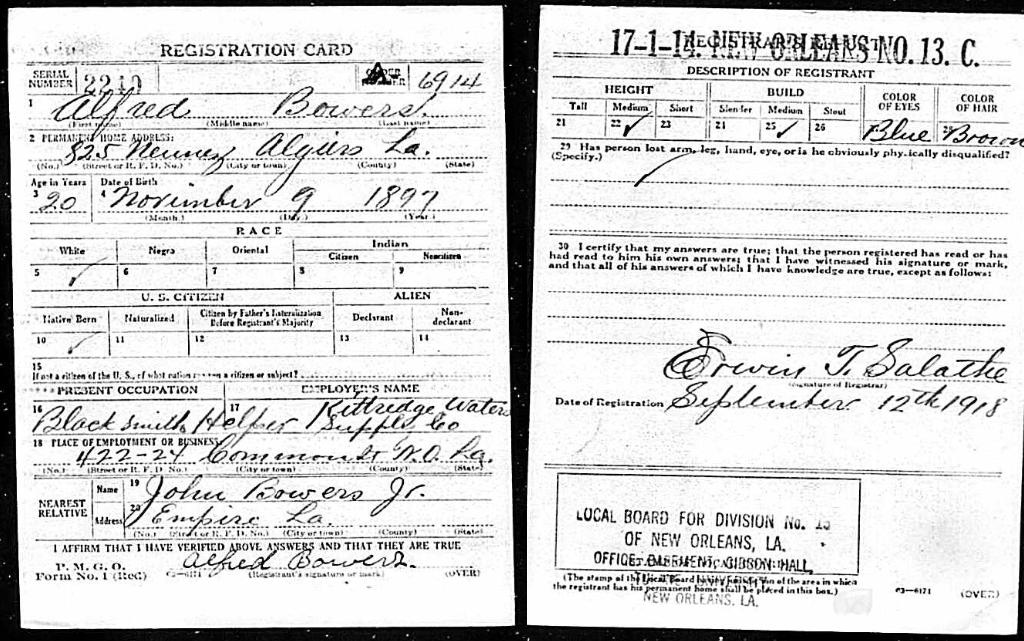 REGISTRATION CARD
SERIAL NUMBER 2240 ORDER NUMBER A 6914
1 Alfred Bowers
(First name) (Middle name) (Last name)
2 PERMANENT HOME ADDRESS:
825 Algiers La.
(No.) (Street or R. F. D. No.) (City or town) (County) (State)
Age in Years Date of Birth
3 20 4 November 9 1897
(Month.) (Day.) (Year.)
RACE
White Negro Oriental Indian
Citizen Noncitizen
5 ✓ 6 7 8 9
U. S. CITIZEN ALIEN
Native Born Naturalized Citizen by Father's Naturalization Before Registrant's Majority Declarant Non-declarant
10 ✓ 11 12 13 14
15
If not a citizen of the U. S., of what nation are you a citizen or subject?
PRESENT OCCUPATION EMPLOYER'S NAME
16 Blacksmith Helper 17 Kittredge Waters
Supply Co
18 PLACE OF EMPLOYMENT OR BUSINESS:
422-24 Common St N.O. La.
(No.) (Street or R. F. D. No.) (City or town) (County) (State)
NEAREST RELATIVE Name 19 John Bowers Jr.
Address 20 Empire La.
(No.) (Street or R. F. D. No.) (City or town) (County) (State)
I AFFIRM THAT I HAVE VERIFIED ABOVE ANSWERS AND THAT THEY ARE TRUE
P. M. G. O.
Form No. 1 (Red) 03-6171 Alfred Bowers (Registrant's signature or mark) (OVER)
REGISTRAR'S REPORT
17-1-14. NEW ORLEANS NO. 13. C.
DESCRIPTION OF REGISTRANT
HEIGHT BUILD COLOR OF EYES COLOR OF HAIR
Tall Medium Short Slender Medium Stout
21 22 ✓ 23 24 25 ✓ 26 Blue 28 Brown
29 Has person lost arm, leg, hand, eye, or is he obviously physically disqualified?
(Specify.)
30 I certify that my answers are true; that the person registered has read or has
had read to him his own answers; that I have witnessed his signature or mark,
and that all of his answers of which I have knowledge are true, except as follows:
Erwin T. Salathe
(Signature of Registrar)
Date of Registration September 12th 1918
LOCAL BOARD FOR DIVISION No. 13
OF NEW ORLEANS, LA.
OFFICE: BASEMENT, GIBSON HALL,
(The stamp of the Local Board having jurisdiction of the area in which
the registrant has his permanent home shall be placed in this box.)
NEW ORLEANS, LA.
03-6171 (OVER)